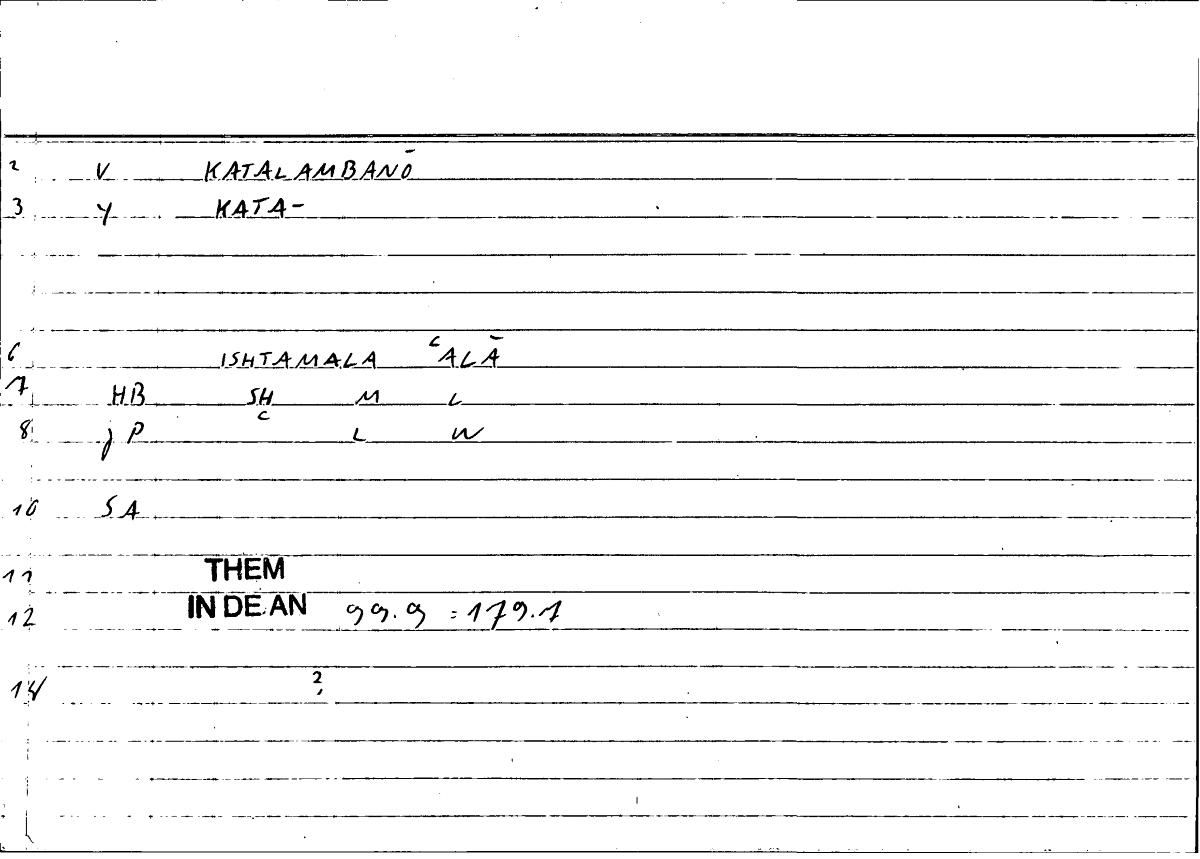 2 V KATALAMBANŌ
3 Y KATA-
6 ISHTAMALA ʿALĀ
7 HB SH M L
8 jP ʿ L W
10 SA
11 THEM
12 IN DE AN 99.9 = 179.1
14 2,